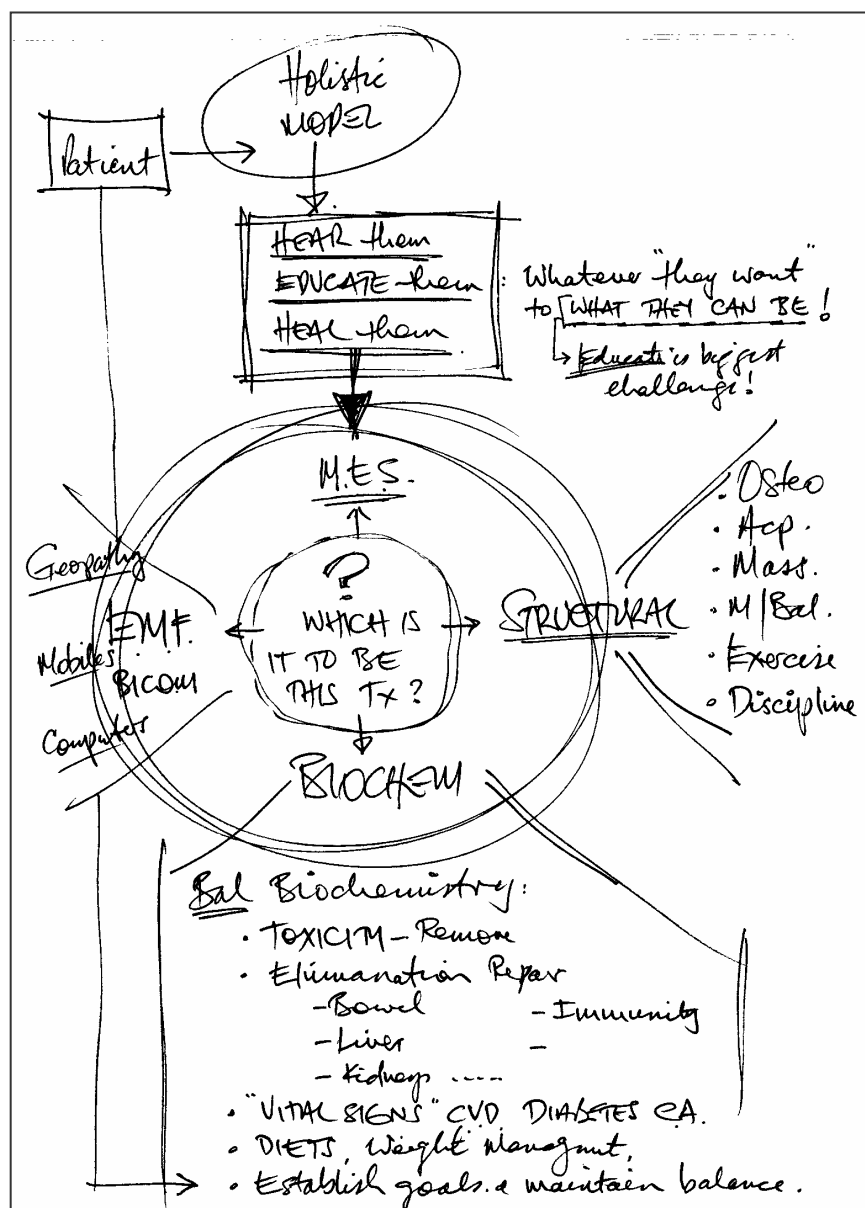 Holistic
MODEL
Patient
HEAR them
EDUCATE them
HEAL them
: Whatever "they want"
to WHAT THEY CAN BE !
Educate is biggest
challenge!
M.E.S.
?
WHICH IS
IT TO BE
THIS Tx ?
Geopathy
E.M.F.
Mobiles
BICOM
Computers
STRUCTURAL
• Osteo
• Acp.
• Mass.
• M/Bal.
• Exercise
• Discipline
BIOCHEM
Bal Biochemistry:
• TOXICITY - Remove
• Elimanation Repair
- Bowel
- Immunity
- Liver
-
- Kidneys .....
• "VITAL SIGNS" CVD DIABETES CA.
• DIETS, Weight Managmnt,
• Establish goals & maintain balance.